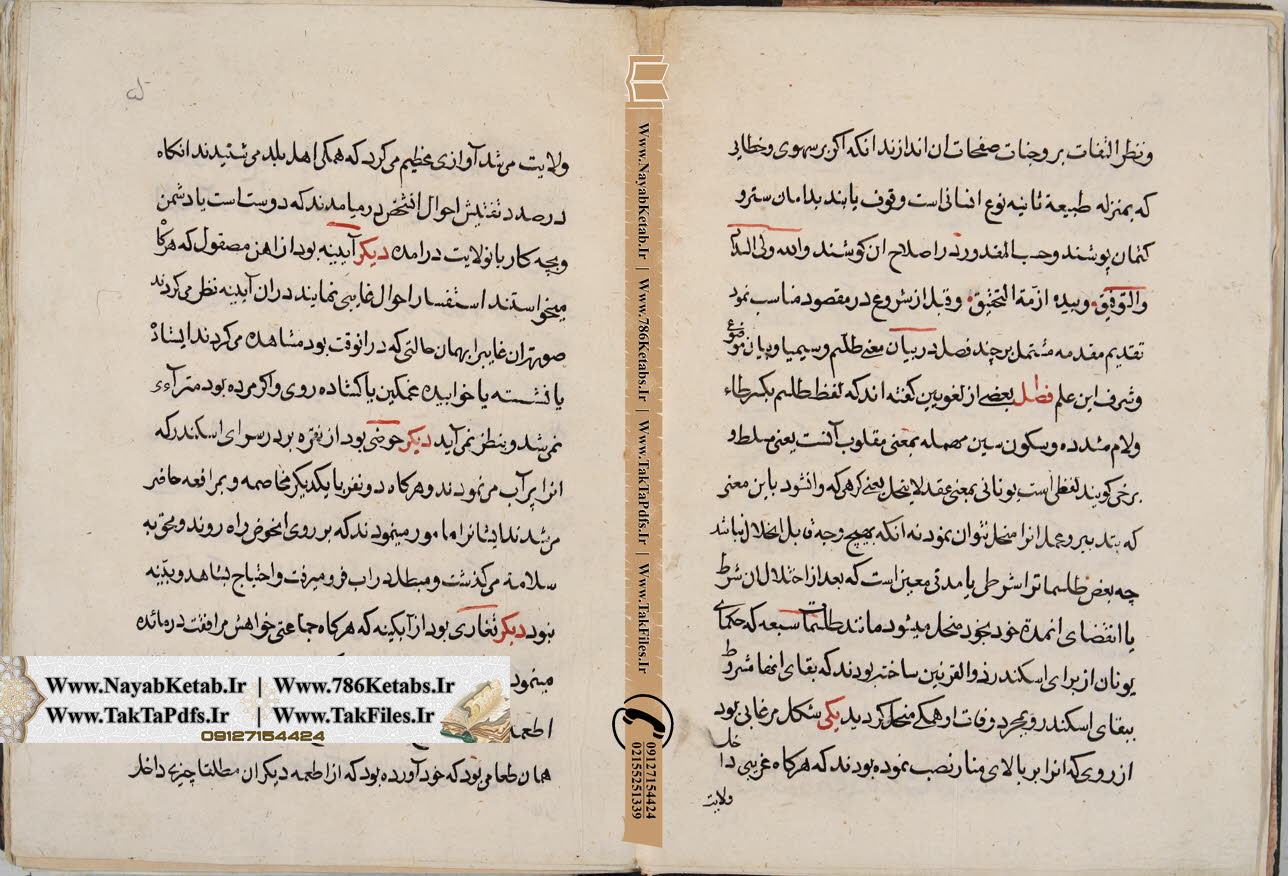 ونظر التفات بر وجنات صفحات ان اندازند انکه اکر بر سهوی وخطایی
که بمنزله طبیعة ثانیه نوع انسانی است وقوف یابند بدامان ستر و
کتمان پوشند وحسب المقدور در اصلاح ان کوشند والله ولی
والتوفیق وبیده ازمة التحقیق وقبل از شروع در مقصود مناسب نمود
تقدیم مقدمه مشتمل بر چند فصل در بیان معنی طلسم وسیمیا وبیان موضوع
وشرف این علم فصل بعضی از لغویین کفته اند که لفظ طلسم بکسر طاء
ولام مشدده وسکون سین مهمله بمعنی مقلوب آنست یعنی مسلط و
برخی کویند لفظی است یونانی بمعنی عقد لاینحل یعنی کرهی که وا نشود باین معنی
که بتدبیر وعمل انرا منحل نتوان نمود نه انکه بهیچ وجه قابل انحلال نباشد
چه بعض طلسماترا شرطی یا مدتی معین است که بعد از اختلال ان شرط
یا انقضای انمدة خود بخود منحل میشود مانند طلسمات سبعه که حکمای
یونان از برای اسکندر ذو القرنین ساخته بودند که بقای انها مشروط
ببقای اسکندر وبمجرد وفات او همکی منحل کردید یکی شکل مرغابی بود
از روی که انرا بر بالای منار نصب نموده بودند که هرکاه غریبی داخل
ولایت
ولایت می شد آوازی عظیم می کرد که همکی اهل بلد می شنیدند انکاه
در صدد تفتیش احوال انشخص در میامدند که دوست است یا دشمن
وبچه کار بانولایت درامده دیکر آیینه بود از اهن مصقول که هرکاه
میخواستند استفسار احوال غایبی نمایند دران آیینه نظر می کردند
صورتران غایبرا بهمان حالتی که در انوقت بود مشاهده می کردند ایستاده
یا نشسته یا خوابیده غمکین یا کشاده روی واکر مرده بود
نمی شد وبنظر نمی آید دیکر حوضی بود از نقره بر در سرای اسکندر که
انرا پر آب می نمودند وهرکاه دو نفر با یکدیکر مخاصمه وبمرافعه حاضر
می شدند ایشانرا مامور مینمودند که بر روی انحوض راه روند ومحق به
سلامة می کذشت ومبطل در اب فرو میرفت واحتیاج بشاهد وبینه
نبود دیکر تغاری بود از آبکینه که هرکاه جماعتی خواهش مرافقت در مائده
مینمود
اطعمه
همان طعامی بود که خود آورده بود که از اطعمه دیکران مطلقا چیزی داخل
Www.NayabKetab.Ir | Www.786Ketabs.Ir
Www.TakTaPdfs.Ir | Www.TakFiles.Ir
09127154424
Www.NayabKetab.Ir | Www.786Ketabs.Ir | Www.TakTaPdfs.Ir | Www.TakFiles.Ir
09127154424
02155251339